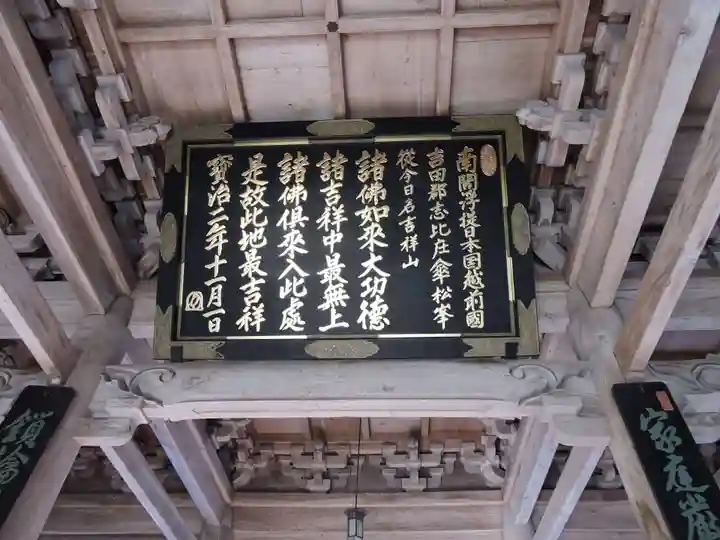 南閻浮提日本国越前國
吉田郡志比庄傘松峯
從今日名吉祥山
諸佛如來大功德
諸吉祥中最無上
諸佛俱來入此處
是故此地最吉祥
寶治二年十一月一日
家庭嚴
鎖